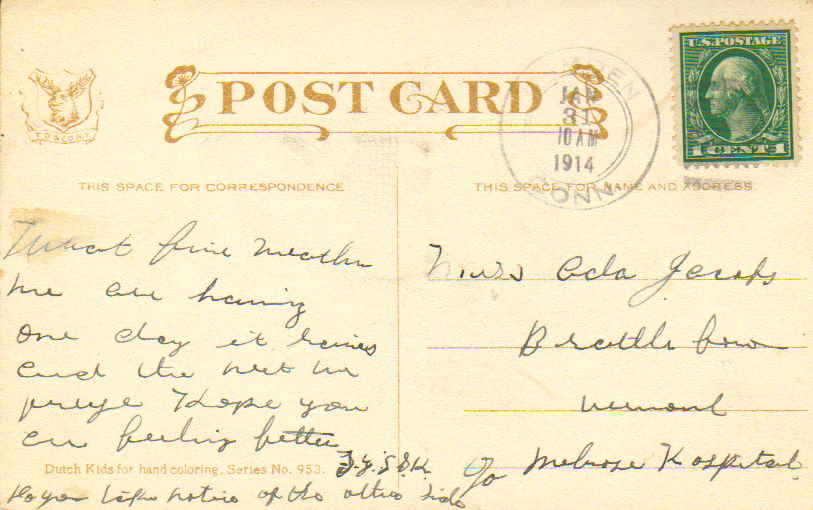 POST CARD
U.S. POSTAGE
1 CENT 1
DEN
JAN
31
10 AM
1914
CONN
THIS SPACE FOR CORRESPONDENCE
THIS SPACE FOR NAME AND ADDRESS.
What fine weather
we are having
one day it raines
and the next we
freeze Hope you
are feeling better
F.Y.S.D.K.
Do you take notice of the other side
Miss Ada Jacobs
Brattleboro
Vermont
Melrose Hospital.
Dutch Kids for hand coloring. Series No. 953.